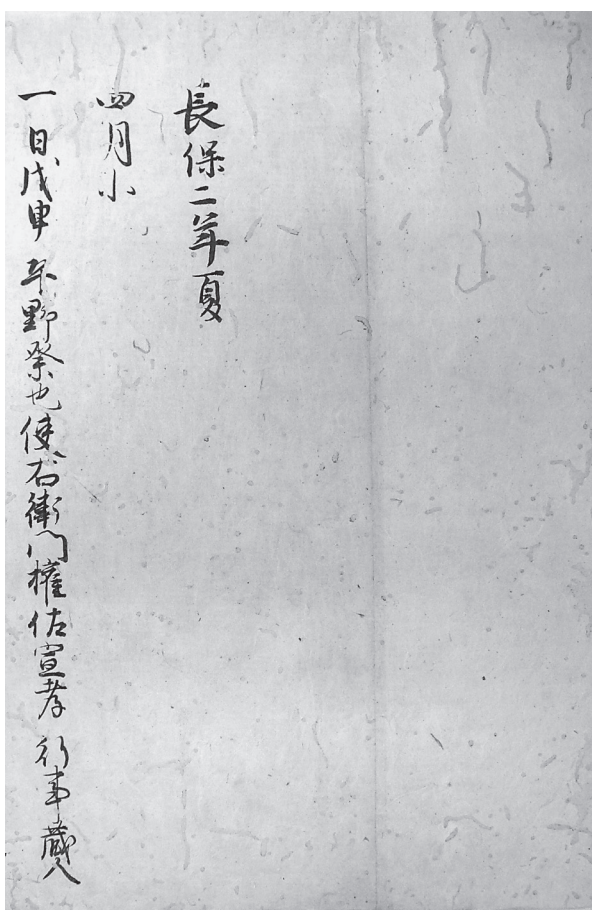 長保二年夏
四月小
一日戊申平野祭也使右衛門権佐宣孝行事蔵人